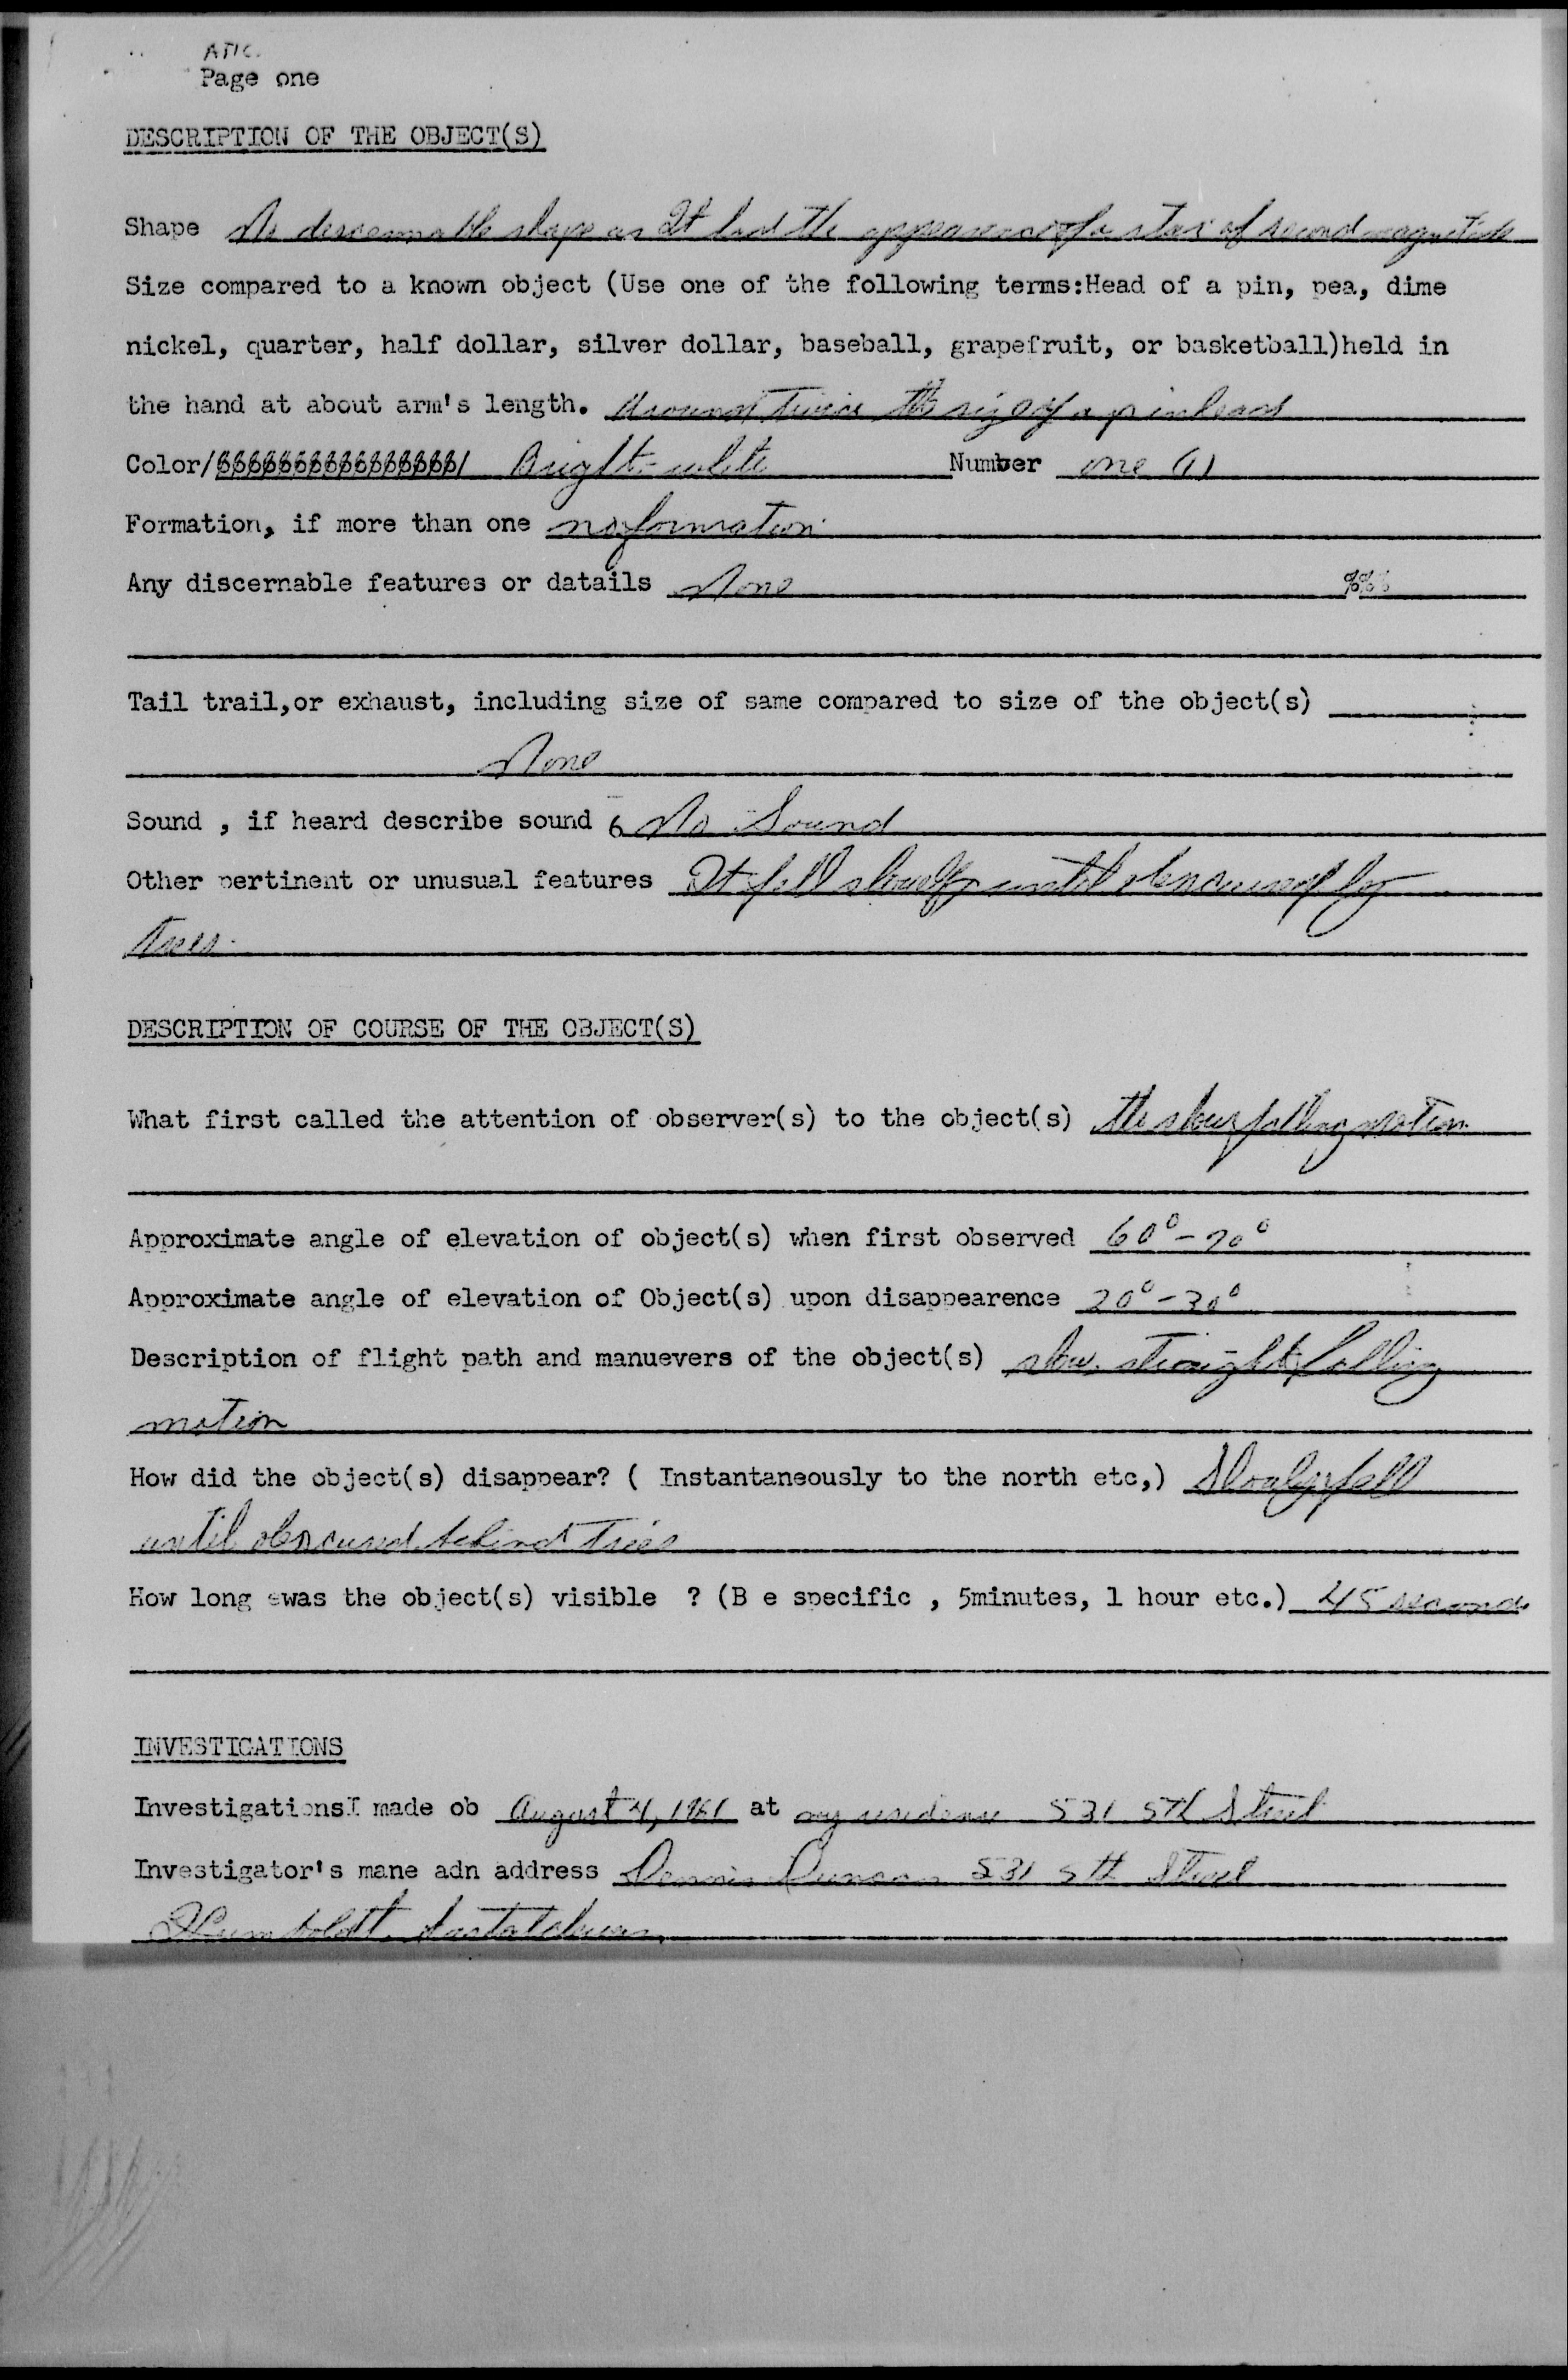 ATIC.
Page one
DESCRIPTION OF THE OBJECT(S)
Shape No discernnable shape as It had the appearance of a star of second magnitude
Size compared to a known object (Use one of the following terms:Head of a pin, pea, dime
nickel, quarter, half dollar, silver dollar, baseball, grapefruit, or basketball)held in
the hand at about arm's length. Around Twice the size of a pinhead
Color/ Bright-white Number one (1)
Formation, if more than one no formation
Any discernable features or datails None %%%
Tail trail,or exhaust, including size of same compared to size of the object(s)
None
Sound , if heard describe sound 6 No Sound
Other pertinent or unusual features It fell slowly until obscured by
trees.
DESCRIPTION OF COURSE OF THE OBJECT(S)
What first called the attention of observer(s) to the object(s) the slow falling motion
Approximate angle of elevation of object(s) when first observed 60°-70°
Approximate angle of elevation of Object(s) upon disappearence 20°-30°
Description of flight path and manuevers of the object(s) slow straight falling
motion
How did the object(s) disappear? ( Instantaneously to the north etc,) Slowly fell
until obscured behind trees
How long was the object(s) visible ? (B e specific , 5minutes, 1 hour etc.) 45 seconds
INVESTIGATIONS
InvestigationsI made ob August 4, 1961 at my residence 531 5th Street
Investigator's mane adn address Dennis Duncan 531 5th Street
Humboldt Saskatchewan